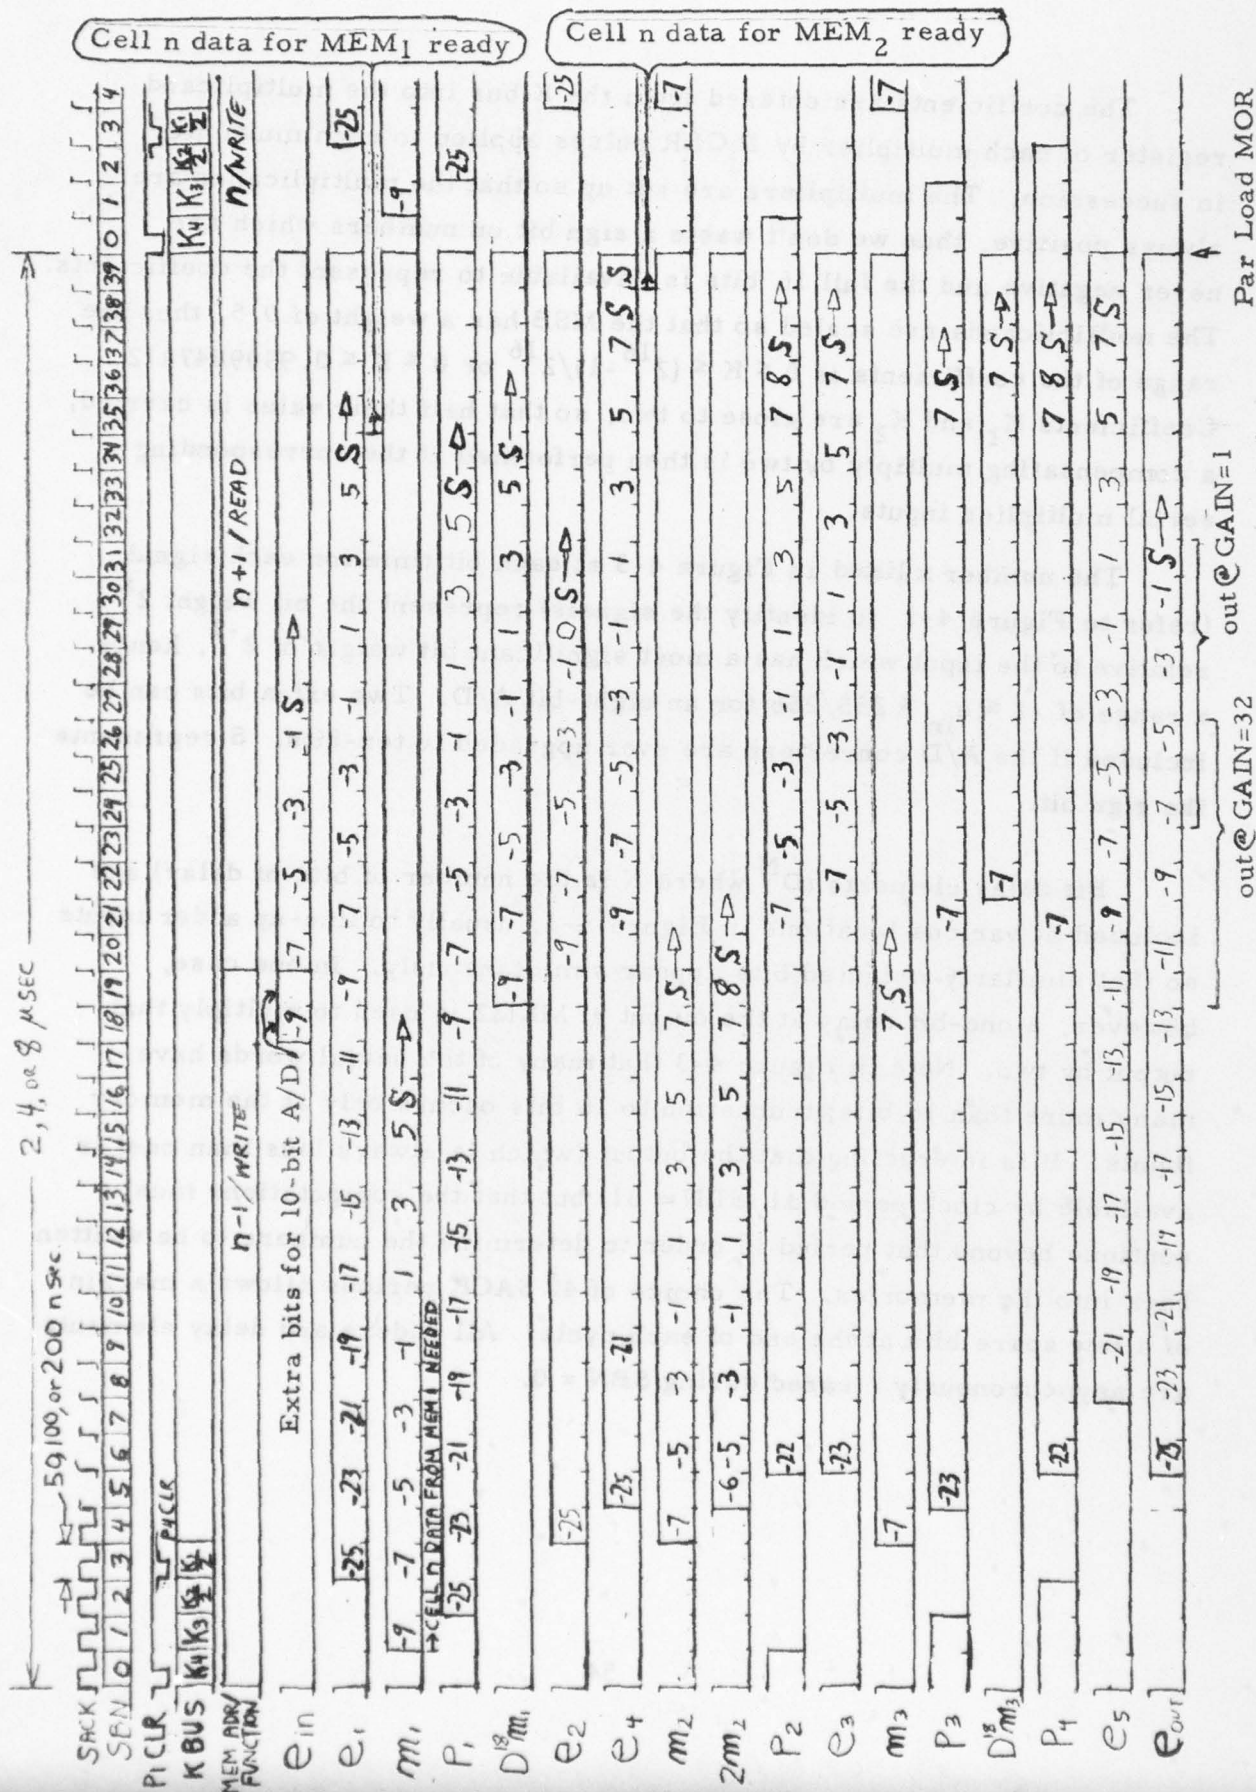 2, 4, OR 8 μSEC
59,100, OR 200 nsec
SACK
SBN 0 1 2 3 4 5 6 7 8 9 10 11 12 13 14 15 16 17 18 19 20 21 22 23 24 25 26 27 28 29 30 31 32 33 34 35 36 37 38 39 0 1 2 3 4
P1 CLR P4CLR
K BUS K4 K3 K2/2 K1/2 K4 K3 K2/2 K1/2
MEM ADR/ FUNCTION n-1/WRITE n+1/READ n/WRITE
Cell n data for MEM1 ready
Cell n data for MEM2 ready
Extra bits for 10 bit A/D
e in -9 -7 -5 -3 -1 S
e1 -25 -23 -21 -19 -17 -15 -13 -11 -9 -7 -5 -3 -1 1 3 5 S -25
m1 -9 -7 -5 -3 -1 1 3 5 S -9
CELL n DATA FROM MEM NEEDED
P1 -25 -23 -21 -19 -17 -15 -13 -11 -9 -7 -5 -3 -1 1 3 5 S -25
D18 m1 -9 -7 -5 -3 -1 1 3 5 S
e2 -25 -9 -7 -5 -3 -1 0 S -25
e4 -25 -21 -9 -7 -5 -3 -1 1 3 5 7 S
m2 -7 -5 -3 -1 1 3 5 7 S -7
2m2 -6 -5 -3 -1 1 3 5 7 8 S
P2 -22 -7 -5 -3 -1 1 3 5 7 8 S
e3 -23 -7 -5 -3 -1 1 3 5 7 S
m3 -7 7 S -7
P3 -23 -7 7 S
D18 m3 -7 7 S
P4 -22 -7 7 8 S
e5 -21 -19 -17 -15 -13 -11 -9 -7 -5 -3 -1 1 3 5 7 S
e OUT -25 -23 -21 -19 -17 -15 -13 -11 -9 -7 -5 -3 -1 S
out@GAIN=32
out@GAIN=1
Par Load MOR